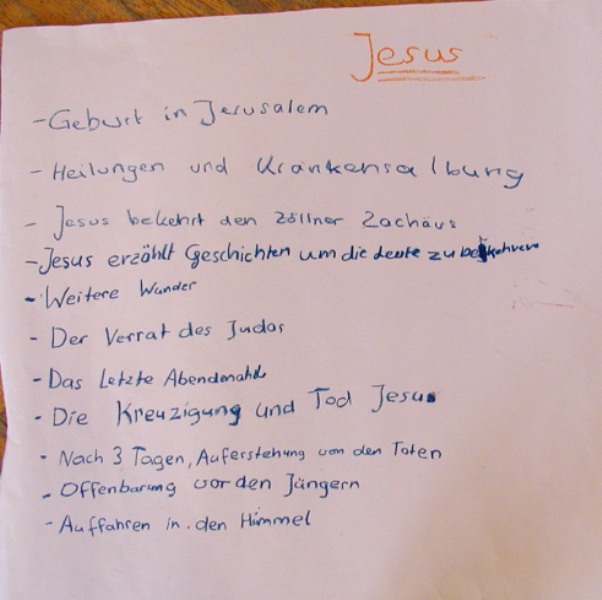 Jesus
- Geburt in Jerusalem
- Heilungen und Krankensalbung
- Jesus bekehrt den Zöllner Zachäus
- Jesus erzählt Geschichten um die Leute zu bekehren
- Weitere Wunder
- Der Verrat des Judas
- Das Letzte Abendmahl
- Die Kreuzigung und Tod Jesus
- Nach 3 Tagen, Auferstehung von den Toten
- Offenbarung vor den Jüngern
- Auffahren in den Himmel